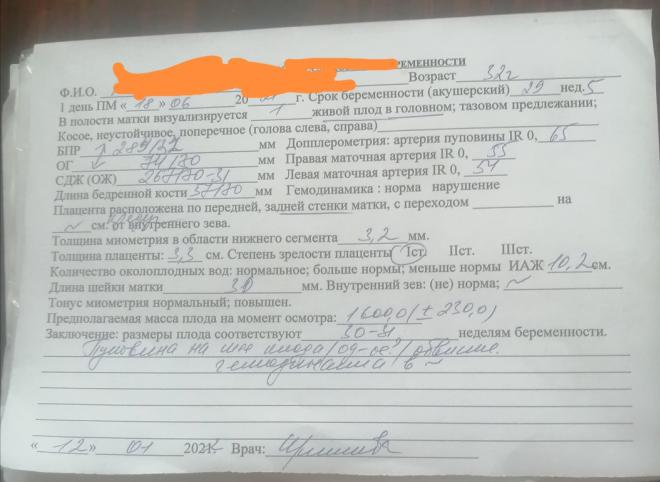 РЕМЕННОСТИ
Ф.И.О. Возраст 32г
1 день ПМ « 18 » 06 20 21 г. Срок беременности (акушерский) 29 нед. 5
В полости матки визуализируется 1 живой плод в головном; тазовом предлежании;
Косое, неустойчивое, поперечное (голова слева, справа)
БПР мм Допплерометрия: артерия пуповины IR 0, 65
ОГ 74/70 мм Правая маточная артерия IR 0, 55
СДЖ (ОЖ) мм Левая маточная артерия IR 0, 51
Длина бедренной кости 57/70 мм Гемодинамика : норма нарушение
Плацента расположена по передней, задней стенки матки, с переходом на
~ см. от внутреннего зева.
Толщина миометрия в области нижнего сегмента 3,2 мм.
Толщина плаценты: 3,3 см. Степень зрелости плаценты Iст. IIст. IIIст.
Количество околоплодных вод: нормальное; больше нормы; меньше нормы ИАЖ 10,2 см.
Длина шейки матки мм. Внутренний зев: (не) норма; ~
Тонус миометрия нормальный; повышен.
Предполагаемая масса плода на момент осмотра: 1600,0 (± 230,0)
Заключение: размеры плода соответствуют 30-31 неделям беременности.
Пуповина на шее плода /од-ое?/ обвитие.
гемодинамика в ~
« 12 » 01 202 Врач: